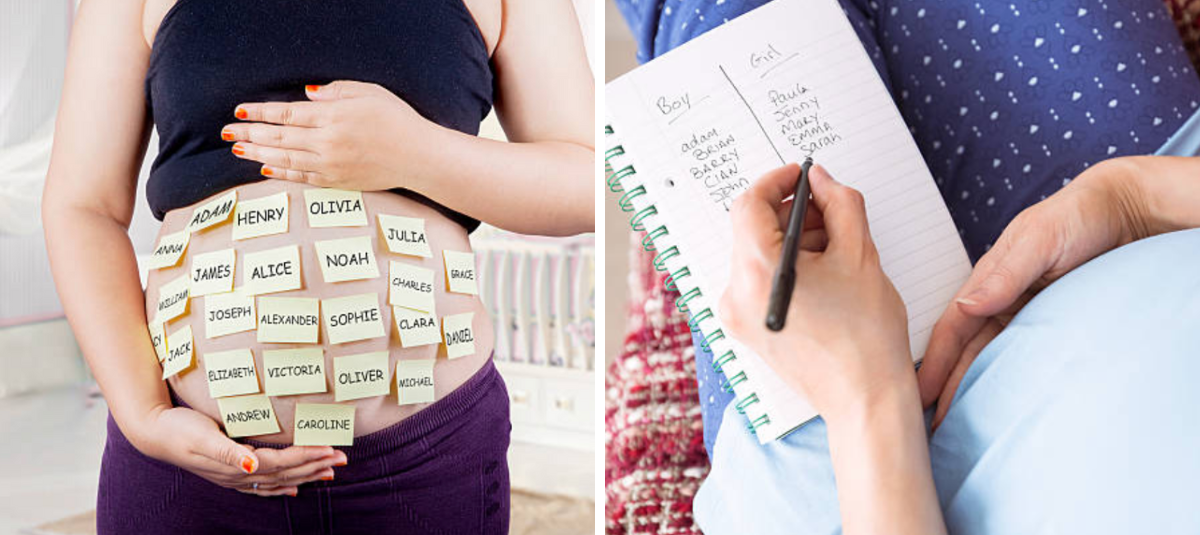 ADAM
HENRY
OLIVIA
JULIA
ANNA
JAMES
ALICE
NOAH
GRACE
WILLIAM
CHARLES
JOSEPH
ALEXANDER
SOPHIE
CLARA
DANIEL
CY
JACK
ELIZABETH
VICTORIA
OLIVER
MICHAEL
ANDREW
CAROLINE
Boy
adam
BRIAN
BARRY
CIAN
John
Girl
Paula
JENNY
MARY
EMMA
Sarah